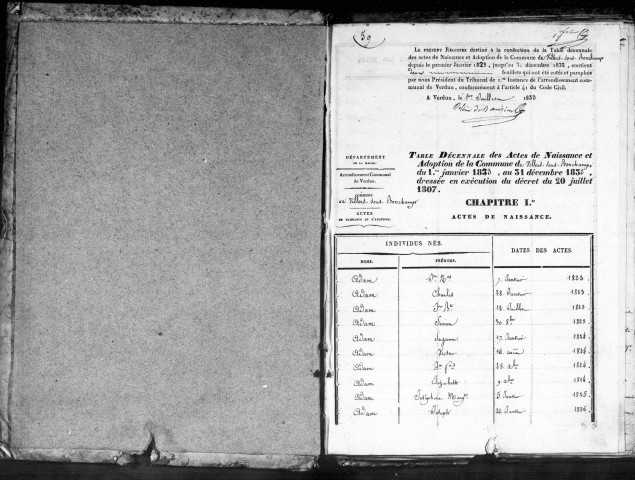 59
LE PRÉSENT REGISTRE destiné à la confection de la Table décennale
des actes de Naissance et Adoption de la Commune de Villers-sous-Bonchamps
depuis le premier Janvier 1823, jusqu'au 31 décembre 1832, contient
feuillets qui ont été cotés et paraphés
par nous Président du Tribunal de 1.re Instance de l'arrondissement com-
munal de Verdun, conformément à l'article 41 du Code Civil.
A Verdun, le 1833
DÉPARTEMENT
DE LA MEUSE.
Arrondissement Communal
de Verdun.
COMMUNE
de Villers-sous-Bonchamps
ACTES
DE NAISSANCE ET D'ADOPTION.
TABLE DÉCENNALE des Actes de Naissance et
Adoption de la Commune de Villers-sous-Bonchamps,
du 1.er janvier 1823, au 31 décembre 1832,
dressée en exécution du décret du 20 juillet
1807.
CHAPITRE I.er
ACTES DE NAISSANCE.
INDIVIDUS NÉS. DATES DES ACTES.
NOMS. PRÉNOMS.
Adam 7 Janvier 1823
Adam Charles 28 Janvier 1823
Adam Juillet 1823
Adam Simon 30 8.bre 1823
Adam Suzanne 17 Janvier 1824
Adam Victor 16 août 1824
Adam 28 1824
Adam Elisabeth 9 1824
Adam Joséphine 5 Janvier 1825
Adam Joseph 22 1826